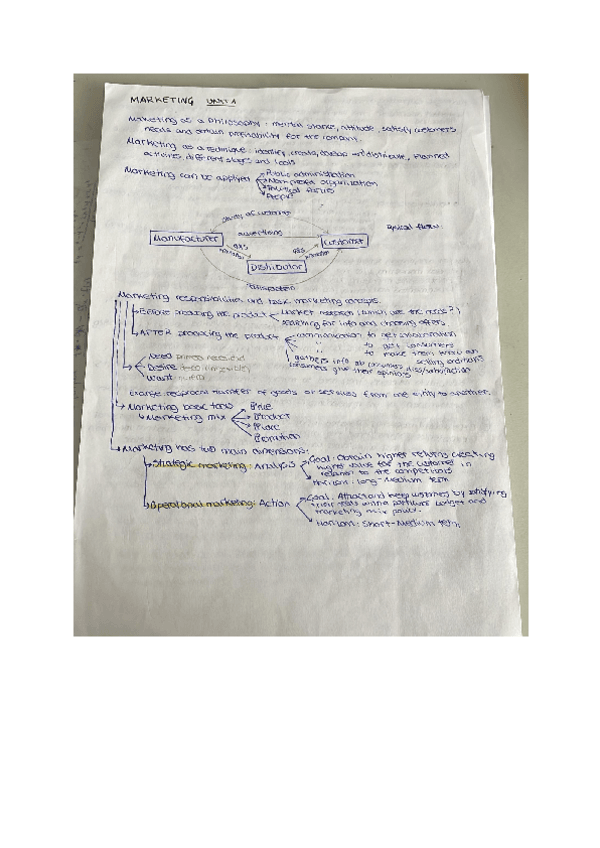 MARKETING UNIT 1
Marketing as a Philosophy: mental stance, attitude, satisfy customers
needs and obtain profitability for the company.
Marketing as a technique: identify, create, develop and distribute, planned
activities, different stages and tools
Marketing can be applied
Public administration
Non-profit organization
Political parties
People
advertising
Manufacturer
Customer
Distributor
G&S
G&S
promotion
satisfaction
flow
Marketing responsibilities and basic marketing concepts.
Before producing the product
Market research (which are the needs?)
searching for info and choosing offers
AFTER producing the product
communication to get
" to get consumers
" to make them
gathers info
consumers give their opinions
Need
Desire
Want
reciprocal transfer of goods or services from one entity to another.
Marketing basic tools
Marketing mix
Price
Product
Place
Promotion
Marketing has two main dimensions:
Strategic marketing: Analysis
Goal: Obtain higher returns creating
higher value for the customer in
relation to the competitors
Horizon: Long-Medium term
Operational marketing: Action
Goal: Attract and keep customers by satisfying
their needs within budget and
marketing mix
Horizon: Short-Medium term.